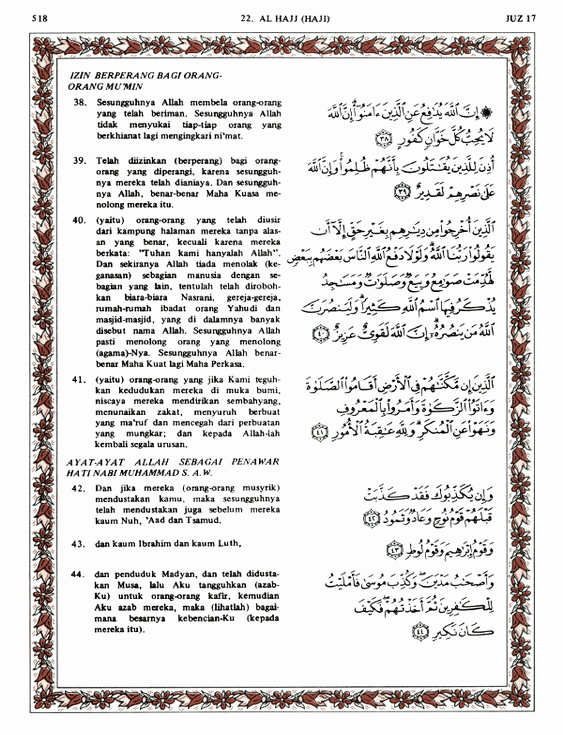 518
22. AL HAJJ (HAJI)
JUZ 17
IZIN BERPERANG BAGI ORANG-
ORANG MU'MIN
38. Sesungguhnya Allah membela orang-orang
yang telah beriman. Sesungguhnya Allah
tidak menyukai tiap-tiap orang yang
berkhianat lagi mengingkari ni'mat.
39. Telah diizinkan (berperang) bagi orang-
orang yang diperangi, karena sesungguh-
nya mereka telah dianiaya. Dan sesungguh-
nya Allah, benar-benar Maha Kuasa me-
nolong mereka itu.
40. (yaitu) orang-orang yang telah diusir
dari kampung halaman mereka tanpa alas-
an yang benar, kecuali karena mereka
berkata: "Tuhan kami hanyalah Allah".
Dan sekiranya Allah tiada menolak (ke-
ganasan) sebagian manusia dengan se-
bagian yang lain, tentulah telah diroboh-
kan biara-biara Nasrani, gereja-gereja,
rumah-rumah ibadat orang Yahudi dan
masjid-masjid, yang di dalamnya banyak
disebut nama Allah. Sesungguhnya Allah
pasti menolong orang yang menolong
(agama)-Nya. Sesungguhnya Allah benar-
benar Maha Kuat lagi Maha Perkasa.
41. (yaitu) orang-orang yang jika Kami teguh-
kan kedudukan mereka di muka bumi,
niscaya mereka mendirikan sembahyang,
menunaikan zakat, menyuruh berbuat
yang ma'ruf dan mencegah dari perbuatan
yang mungkar; dan kepada Allah-lah
kembali segala urusan.
AYAT-AYAT ALLAH SEBAGAI PENAWAR
HATI NABI MUHAMMAD S. A. W.
42. Dan jika mereka (orang-orang musyrik)
mendustakan kamu, maka sesungguhnya
telah mendustakan juga sebelum mereka
kaum Nuh, 'Aad dan Tsamud,
43. dan kaum Ibrahim dan kaum Luth,
44. dan penduduk Madyan, dan telah didusta-
kan Musa, lalu Aku tangguhkan (azab-
Ku) untuk orang-orang kafir, kemudian
Aku azab mereka, maka (lihatlah) bagai-
mana besarnya kebencian-Ku (kepada
mereka itu).
إِنَّ اللَّهَ يُدَافِعُ عَنِ الَّذِينَ ءَامَنُوا إِنَّ اللَّهَ
لَا يُحِبُّ كُلَّ خَوَّانٍ كَفُورٍ ٣٨
أُذِنَ لِلَّذِينَ يُقَاتَلُونَ بِأَنَّهُمْ ظُلِمُوا وَإِنَّ اللَّهَ
عَلَى نَصْرِهِمْ لَقَدِيرٌ ٣٩
الَّذِينَ أُخْرِجُوا مِن دِيَارِهِم بِغَيْرِ حَقٍّ إِلَّا أَن
يَقُولُوا رَبُّنَا اللَّهُ وَلَوْلَا دَفْعُ اللَّهِ النَّاسَ بَعْضَهُم بِبَعْضٍ
لَهُدِّمَتْ صَوَامِعُ وَبِيَعٌ وَصَلَوَاتٌ وَمَسَاجِدُ
يُذْكَرُ فِيهَا اسْمُ اللَّهِ كَثِيرًا وَلَيَنصُرَنَّ
اللَّهُ مَن يَنصُرُهُ إِنَّ اللَّهَ لَقَوِيٌّ عَزِيزٌ ٤٠
الَّذِينَ إِن مَّكَّنَّاهُمْ فِي الْأَرْضِ أَقَامُوا الصَّلَوٰةَ
وَءَاتَوُا الزَّكَوٰةَ وَأَمَرُوا بِالْمَعْرُوفِ
وَنَهَوْا عَنِ الْمُنكَرِ وَلِلَّهِ عَاقِبَةُ الْأُمُورِ ٤١
وَإِن يُكَذِّبُوكَ فَقَدْ كَذَّبَتْ
قَبْلَهُمْ قَوْمُ نُوحٍ وَعَادٌ وَثَمُودُ ٤٢
وَقَوْمُ إِبْرَاهِيمَ وَقَوْمُ لُوطٍ ٤٣
وَأَصْحَابُ مَدْيَنَ وَكُذِّبَ مُوسَى فَأَمْلَيْتُ
لِلْكَافِرِينَ ثُمَّ أَخَذْتُهُمْ فَكَيْفَ
كَانَ نَكِيرِ ٤٤